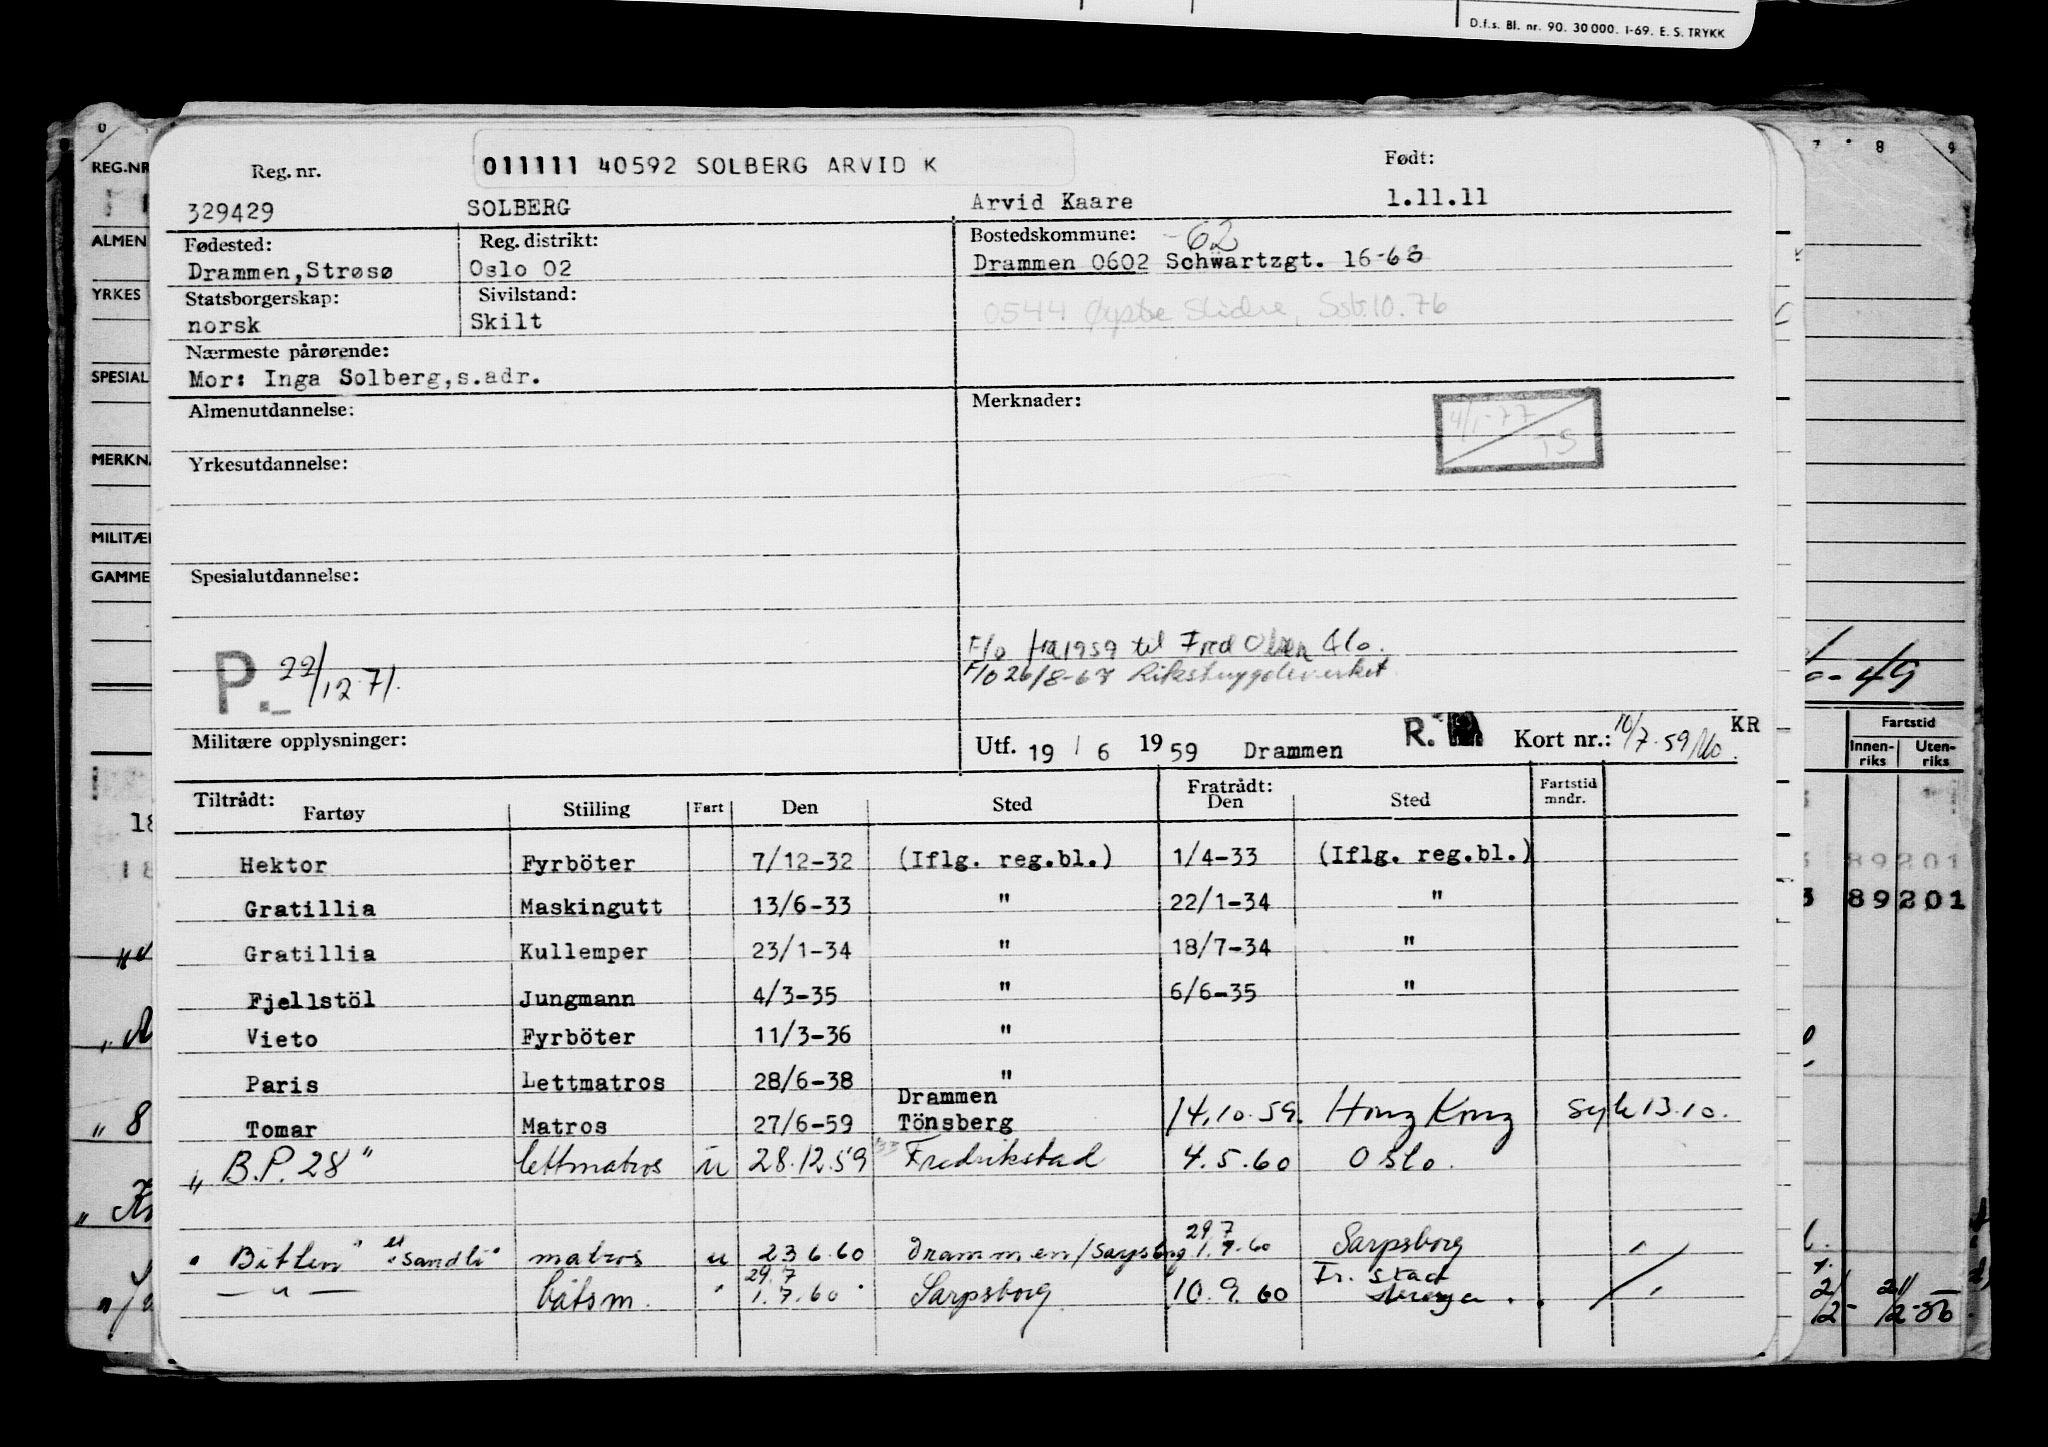 D.f.s. Bl. nr. 90. 30 000. 1-69. E. S. TRYKK
Reg. nr. 011111 40592 SOLBERG ARVID K Født:
329429 SOLBERG Arvid Kaare 1.11.11
Fødested: Reg. distrikt: Bostedskommune: -62
Drammen,Strøsø Oslo 02 Drammen 0602 Schwartzgt. 16-63
Statsborgerskap: Sivilstand: 0544 Øystre Slidre, Ssb.10.76
norsk Skilt
Nærmeste pårørende:
Mor: Inga Solberg,s.adr.
Almenutdannelse: Merknader: 4/1-77 TS
Yrkesutdannelse:
Spesialutdannelse:
F/o fra 1959 til Fred Olsen &Co.
P.- 22/12.71. F/o 26/8-67 Rikstrygdeverket
Militære opplysninger: Utf. 19 / 6 1959 Drammen R. Kort nr.: 10/7.59 KR
Tiltrådt: Fratrådt: Fartstid
Fartøy Stilling Fart Den Sted Den Sted mndr.
Hektor Fyrböter 7/12-32 (Iflg. reg.bl.) 1/4-33 (Iflg. reg.bl.)
Gratillia Maskingutt 13/6-33 " 22/1-34 "
Gratillia Kullemper 23/1-34 " 18/7-34 "
Fjellstöl Jungmann 4/3-35 " 6/6-35 "
Vieto Fyrböter 11/3-36 "
Paris Lettmatros 28/6-38 "
Tomar Matros 27/6-59 Drammen Tönsberg 14.10.59. Hong Kong syk 13.10.
"B.P. 28" lettmatros u 28.12.59 Fredrikstad 4.5.60 Oslo.
29.7
"Bitten" "Sandli" matros u 23 6.60 Drammen/Sarpsborg 1.7.60 Sarpsborg "
29.7
— " — båtsm. " 1.7.60 Sarpsborg 10.9.60 "
REG.NR
ALMEN
YRKES
SPESIAL
MERKN.
MILITÆ
GAMME
7 8 9
-49
Fartstid
Innen-riks Uten-riks
89201
89201